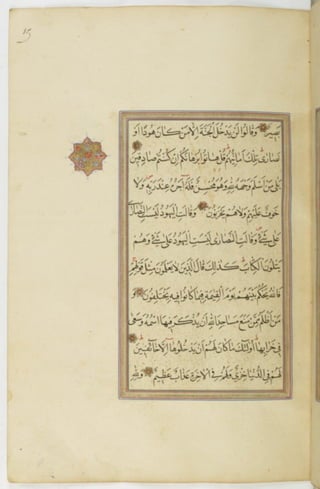 بصير وقالوا لن يدخل الجنة الا من كان هودا او
نصارى تلك امانيهم قل هاتوا برهانكم ان كنتم صادقين
بلى من اسلم وجهه لله وهو محسن فله اجره عند ربه ولا
خوف عليهم ولا هم يحزنون وقالت اليهود ليست النصارى
على شئ وقالت النصارى ليست اليهود على شئ وهم
يتلون الكتاب كذلك قال الذين لا يعلمون مثل قولهم
فالله يحكم بينهم يوم القيمة فيما كانوا فيه يختلفون و
من اظلم ممن منع مساجد الله ان يذكر فيها اسمه وسعى
في خرابها اولئك ما كان لهم ان يدخلوها الا خائفين
لهم في الدنيا خزى ولهم في الاخرة عذاب عظيم ولله